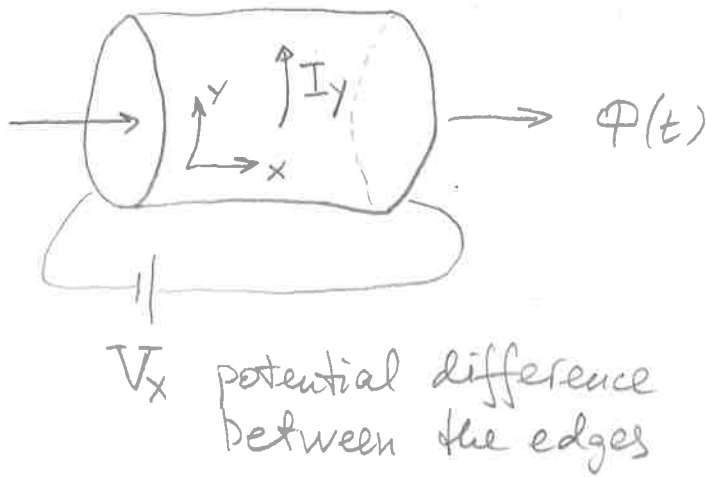 y
I_y
x
Φ(t)
V_x potential difference
between the edges